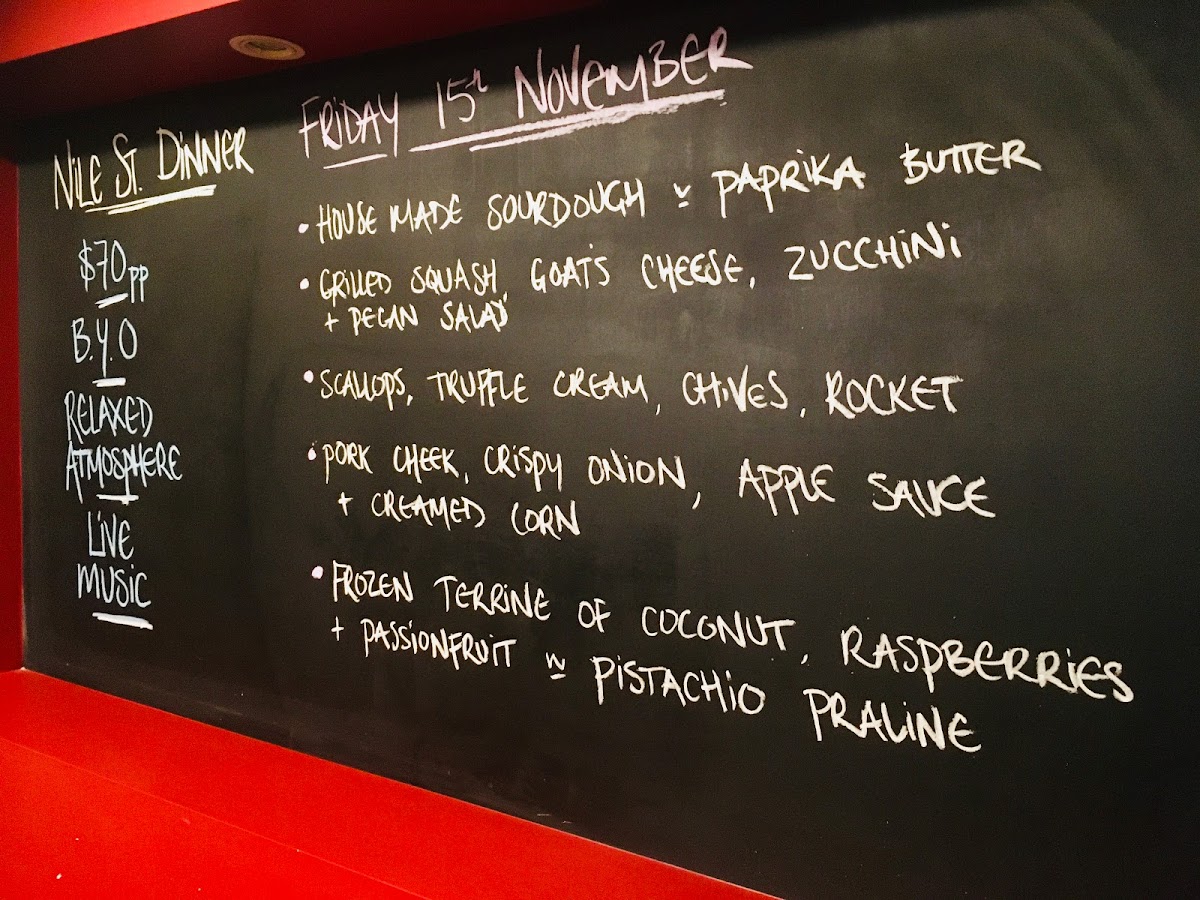 NILE ST. DINNER
$70pp
B.Y.O
RELAXED
ATMOSPHERE
LIVE
MUSIC
FRIDAY 15th NOVEMBER
• HOUSE MADE SOURDOUGH w PAPRIKA BUTTER
• GRILLED SQUASH GOAT'S CHEESE, ZUCCHINI
+ PECAN SALAD
• SCALLOPS, TRUFFLE CREAM, CHIVES, ROCKET
• PORK CHEEK, CRISPY ONION, APPLE SAUCE
+ CREAMED CORN
• FROZEN TERRINE OF COCONUT, RASPBERRIES
+ PASSIONFRUIT w PISTACHIO PRALINE